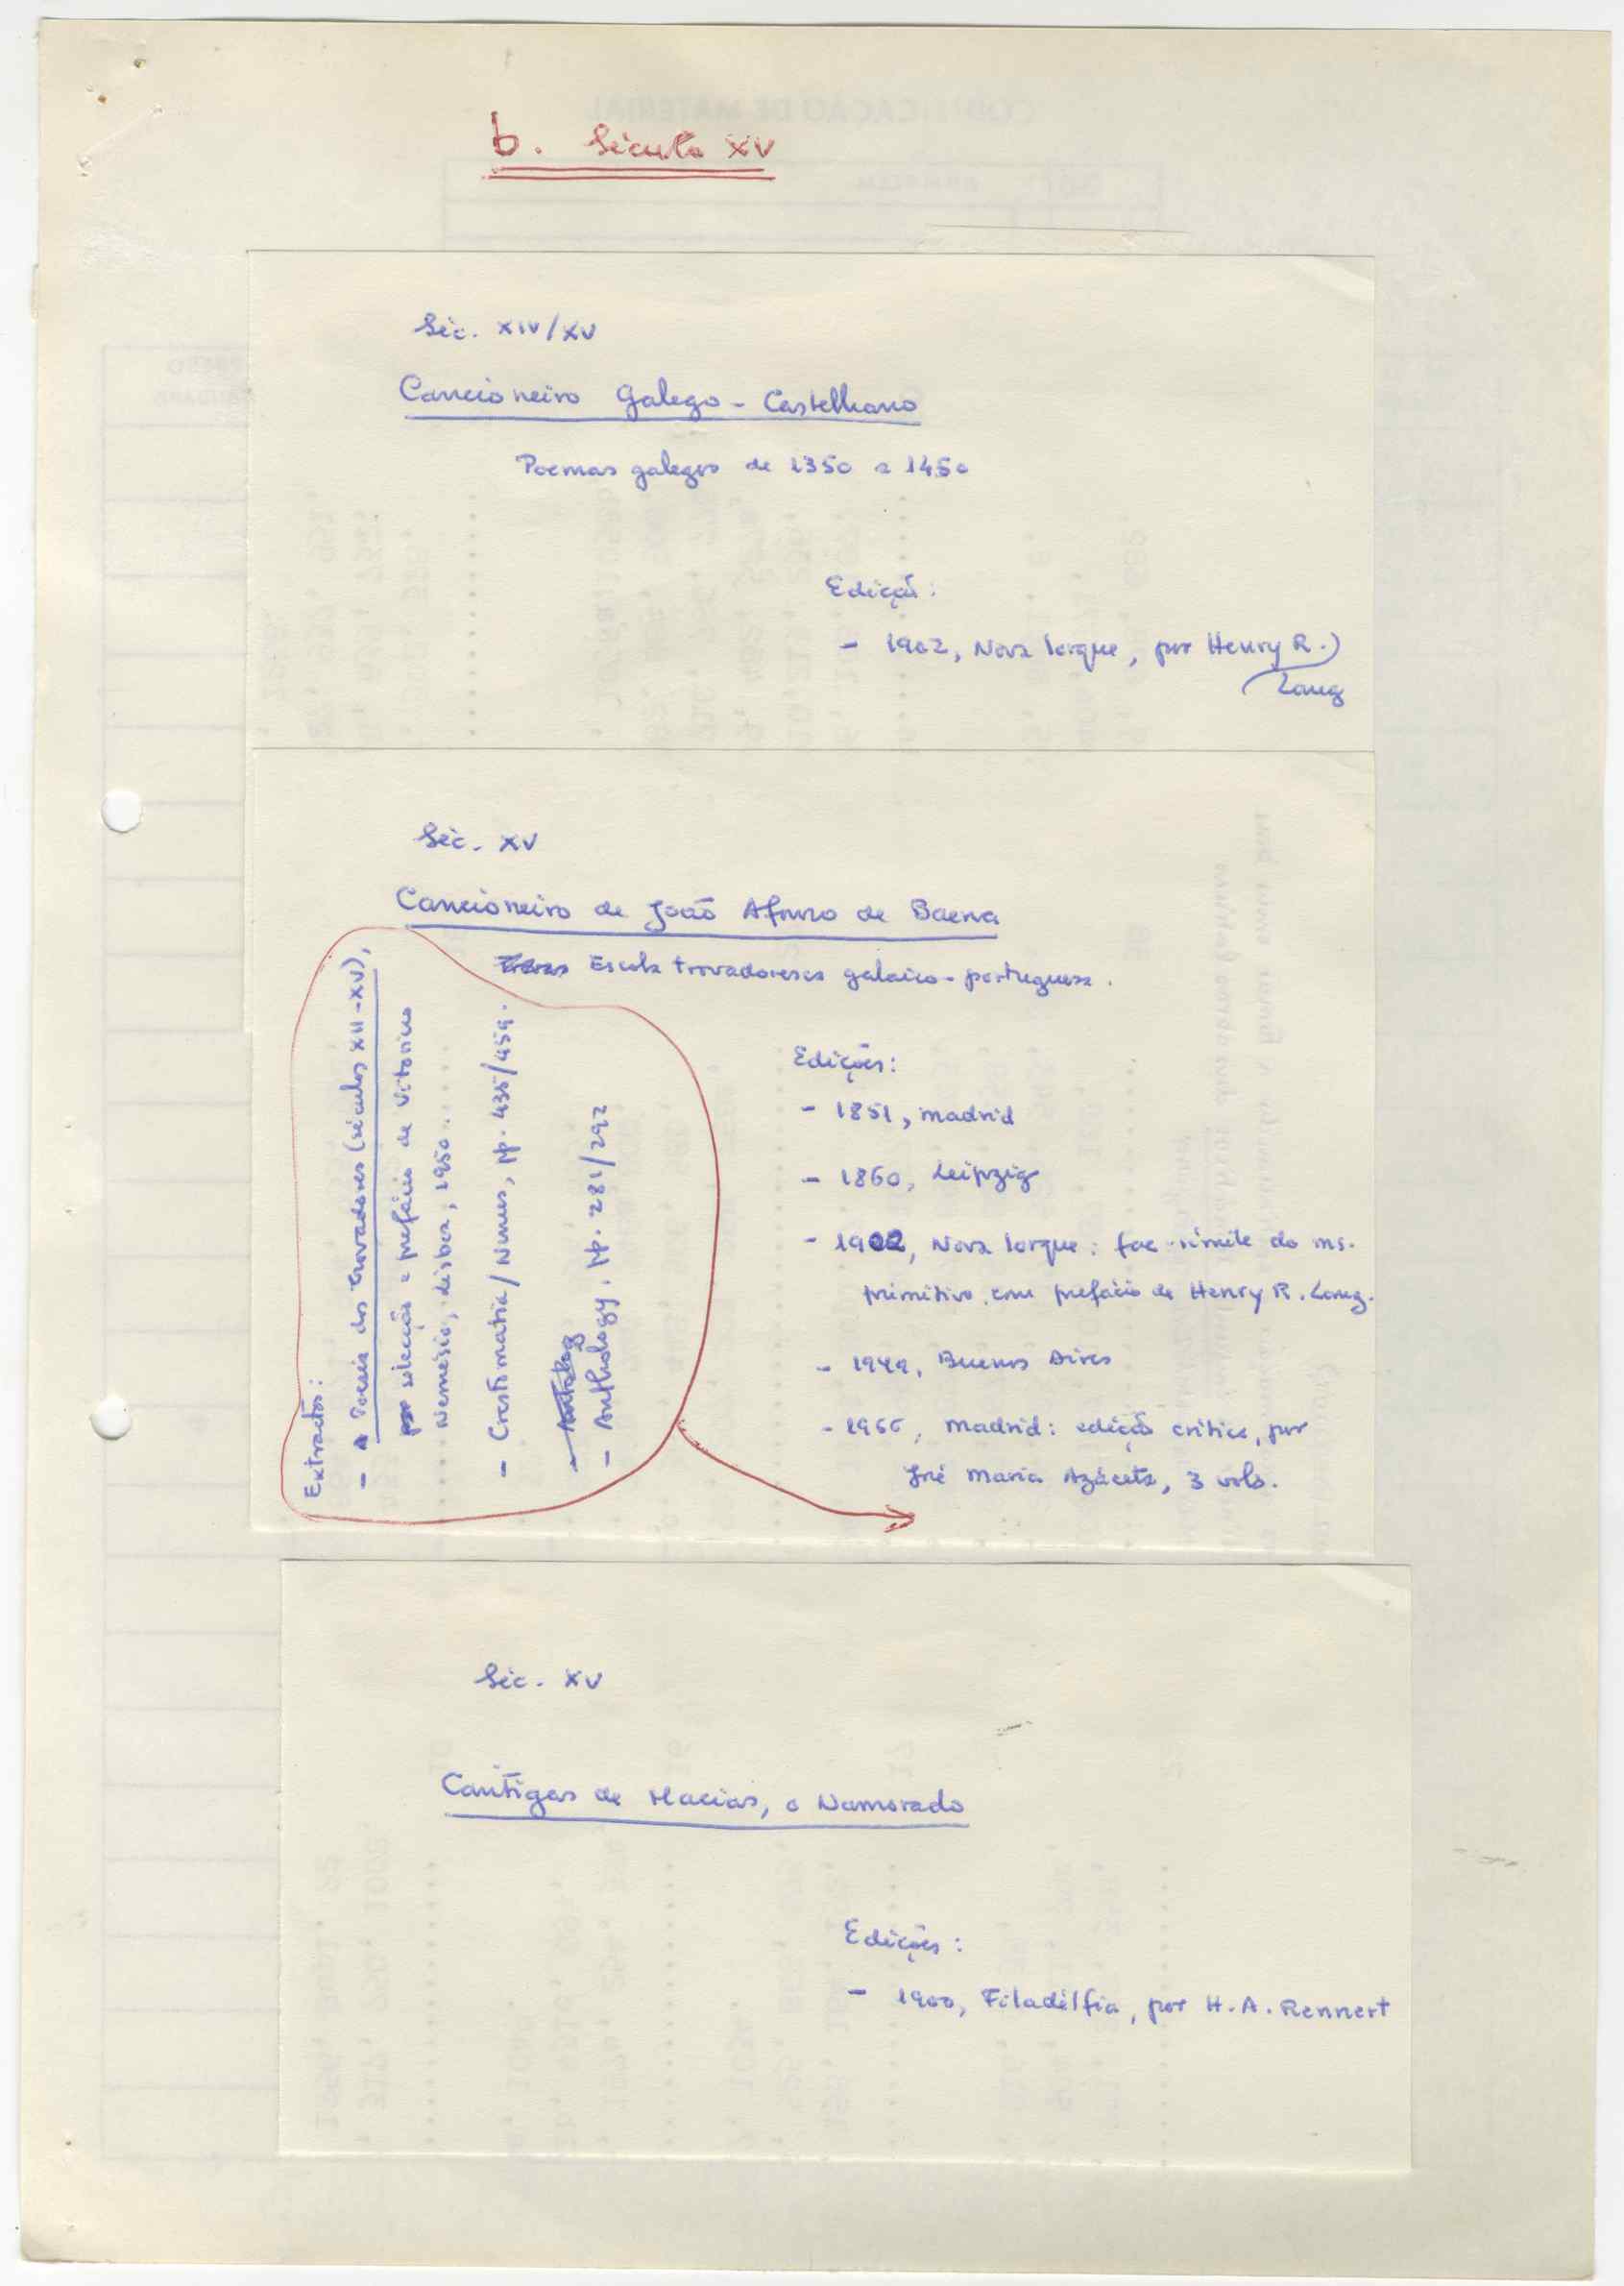 b. Século XV
Séc. XIV/XV
Cancioneiro Galego-Castelhano
Poemas galegos de 1350 a 1450
Edição:
- 1902, Nova Iorque, por Henry R.
Lang
Séc. XV
Cancioneiro de João Afonso de Baena
Escola trovadoresca galaico-portuguesa.
Edições:
- 1851, Madrid
- 1860, Leipzig
- 1902, Nova Iorque: fac-símile do ms.
primitivo, com prefácio de Henry R. Lang.
- 1949, Buenos Aires
- 1966, Madrid: edição crítica, por
José Maria Azáceta, 3 vols.
Extractos:
- Poesia dos Trovadores (séculos XII-XV),
selecção e prefácio de Vitorino
Nemésio, Lisboa, 1950.
- Crestomatia/Nunes, pp. 435/459.
- Antholog
- Anthology, pp. 281/292
Séc. XV
Cantigas de Macias, o Namorado
Edições:
- 1900, Filadélfia, por H.A. Rennert